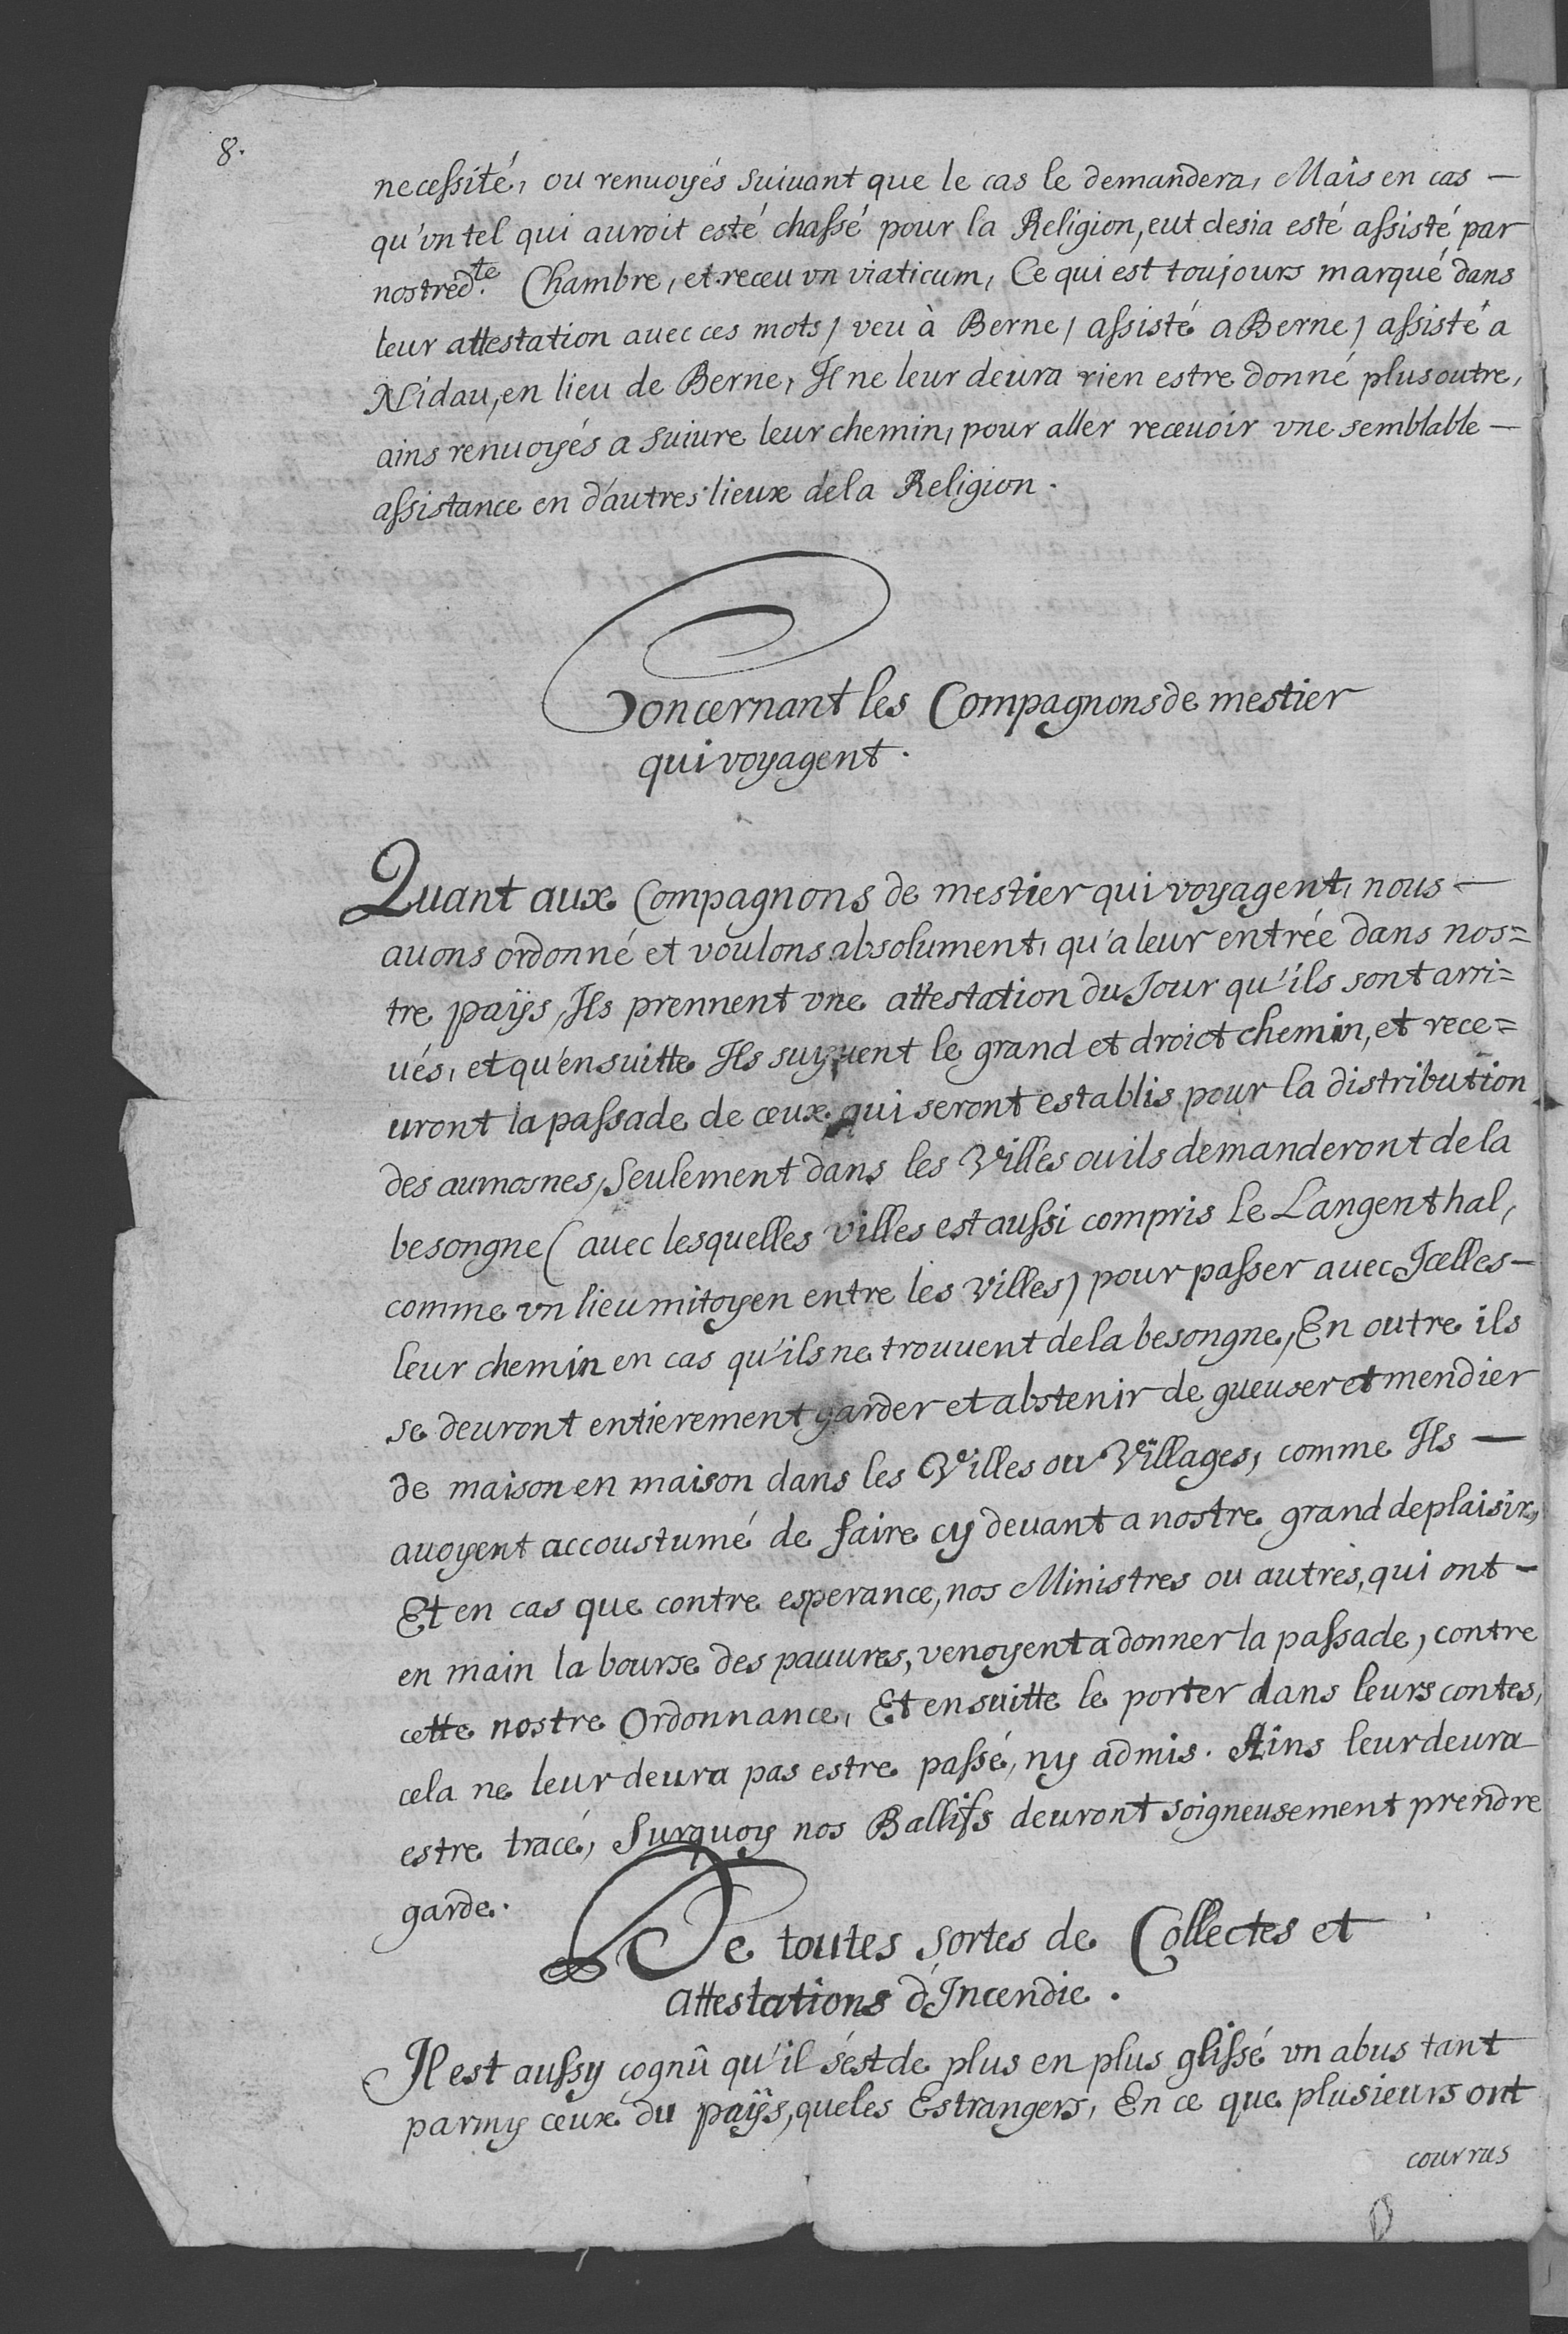 8.
necessité, ou renuoyés suiuant que le cas le demandera, Mais en cas —
qu'vn tel qui auroit esté chassé pour la Religion, eut desia esté assisté par
nostred.te Chambre, et receu vn viaticum, Ce qui est toujours marqué dans
leur attestation auec ces mots / veu à Berne / assisté a Berne / assisté a
Nidau, en lieu de Berne, Il ne leur deura rien estre donné plus outre,
ains renuoyés a suiure leur chemin, pour aller receuoir vne semblable —
assistance en d'autres lieux de la Religion.
Concernant les Compagnons de mestier
qui voyagent.
Quant aux Compagnons de mestier qui voyagent, nous —
auons ordonné et voulons absolument, qu'a leur entrée dans nos=
tre païjs, Ils prennent vne attestation du Jour qu'ils sont arri=
ués, et qu'ensuitte Ils suyuent le grand et droict chemin, et rece=
uront la passade de ceux qui seront establis pour la distribution
des aumosnes, Seulement dans les Villes ou ils demanderont de la
besongne ( auec lesquelles villes est aussi compris le Langenthal,
comme vn lieu mitoyen entre les villes ) pour passer auec Icelles —
leur chemin en cas qu'ils ne trouuent de la besongne, En outre ils
se deuront entierement garder et abstenir de gueuser et mendier
de maison en maison dans les Villes ou Villages, comme Ils —
auoyent accoustumé de faire cy deuant a nostre grand deplaisir,
Et en cas que contre esperance, nos Ministres ou autres, qui ont —
en main la bourse des pauures, venoyent a donner la passade, contre
cette nostre Ordonnance, Et ensuitte le porter dans leurs contes,
cela ne leur deura pas estre passé, ny admis. Ains leur deura
estre tracé, Surquoy nos Ballifs deuront soigneusement prendre
garde.
De toutes sortes de Collectes et
attestations d'Incendie.
Il est aussy cognû qu'il s'est de plus en plus glissé vn abus tant
parmy ceux du païjs, que les Estrangers, En ce que plusieurs ont
courrus